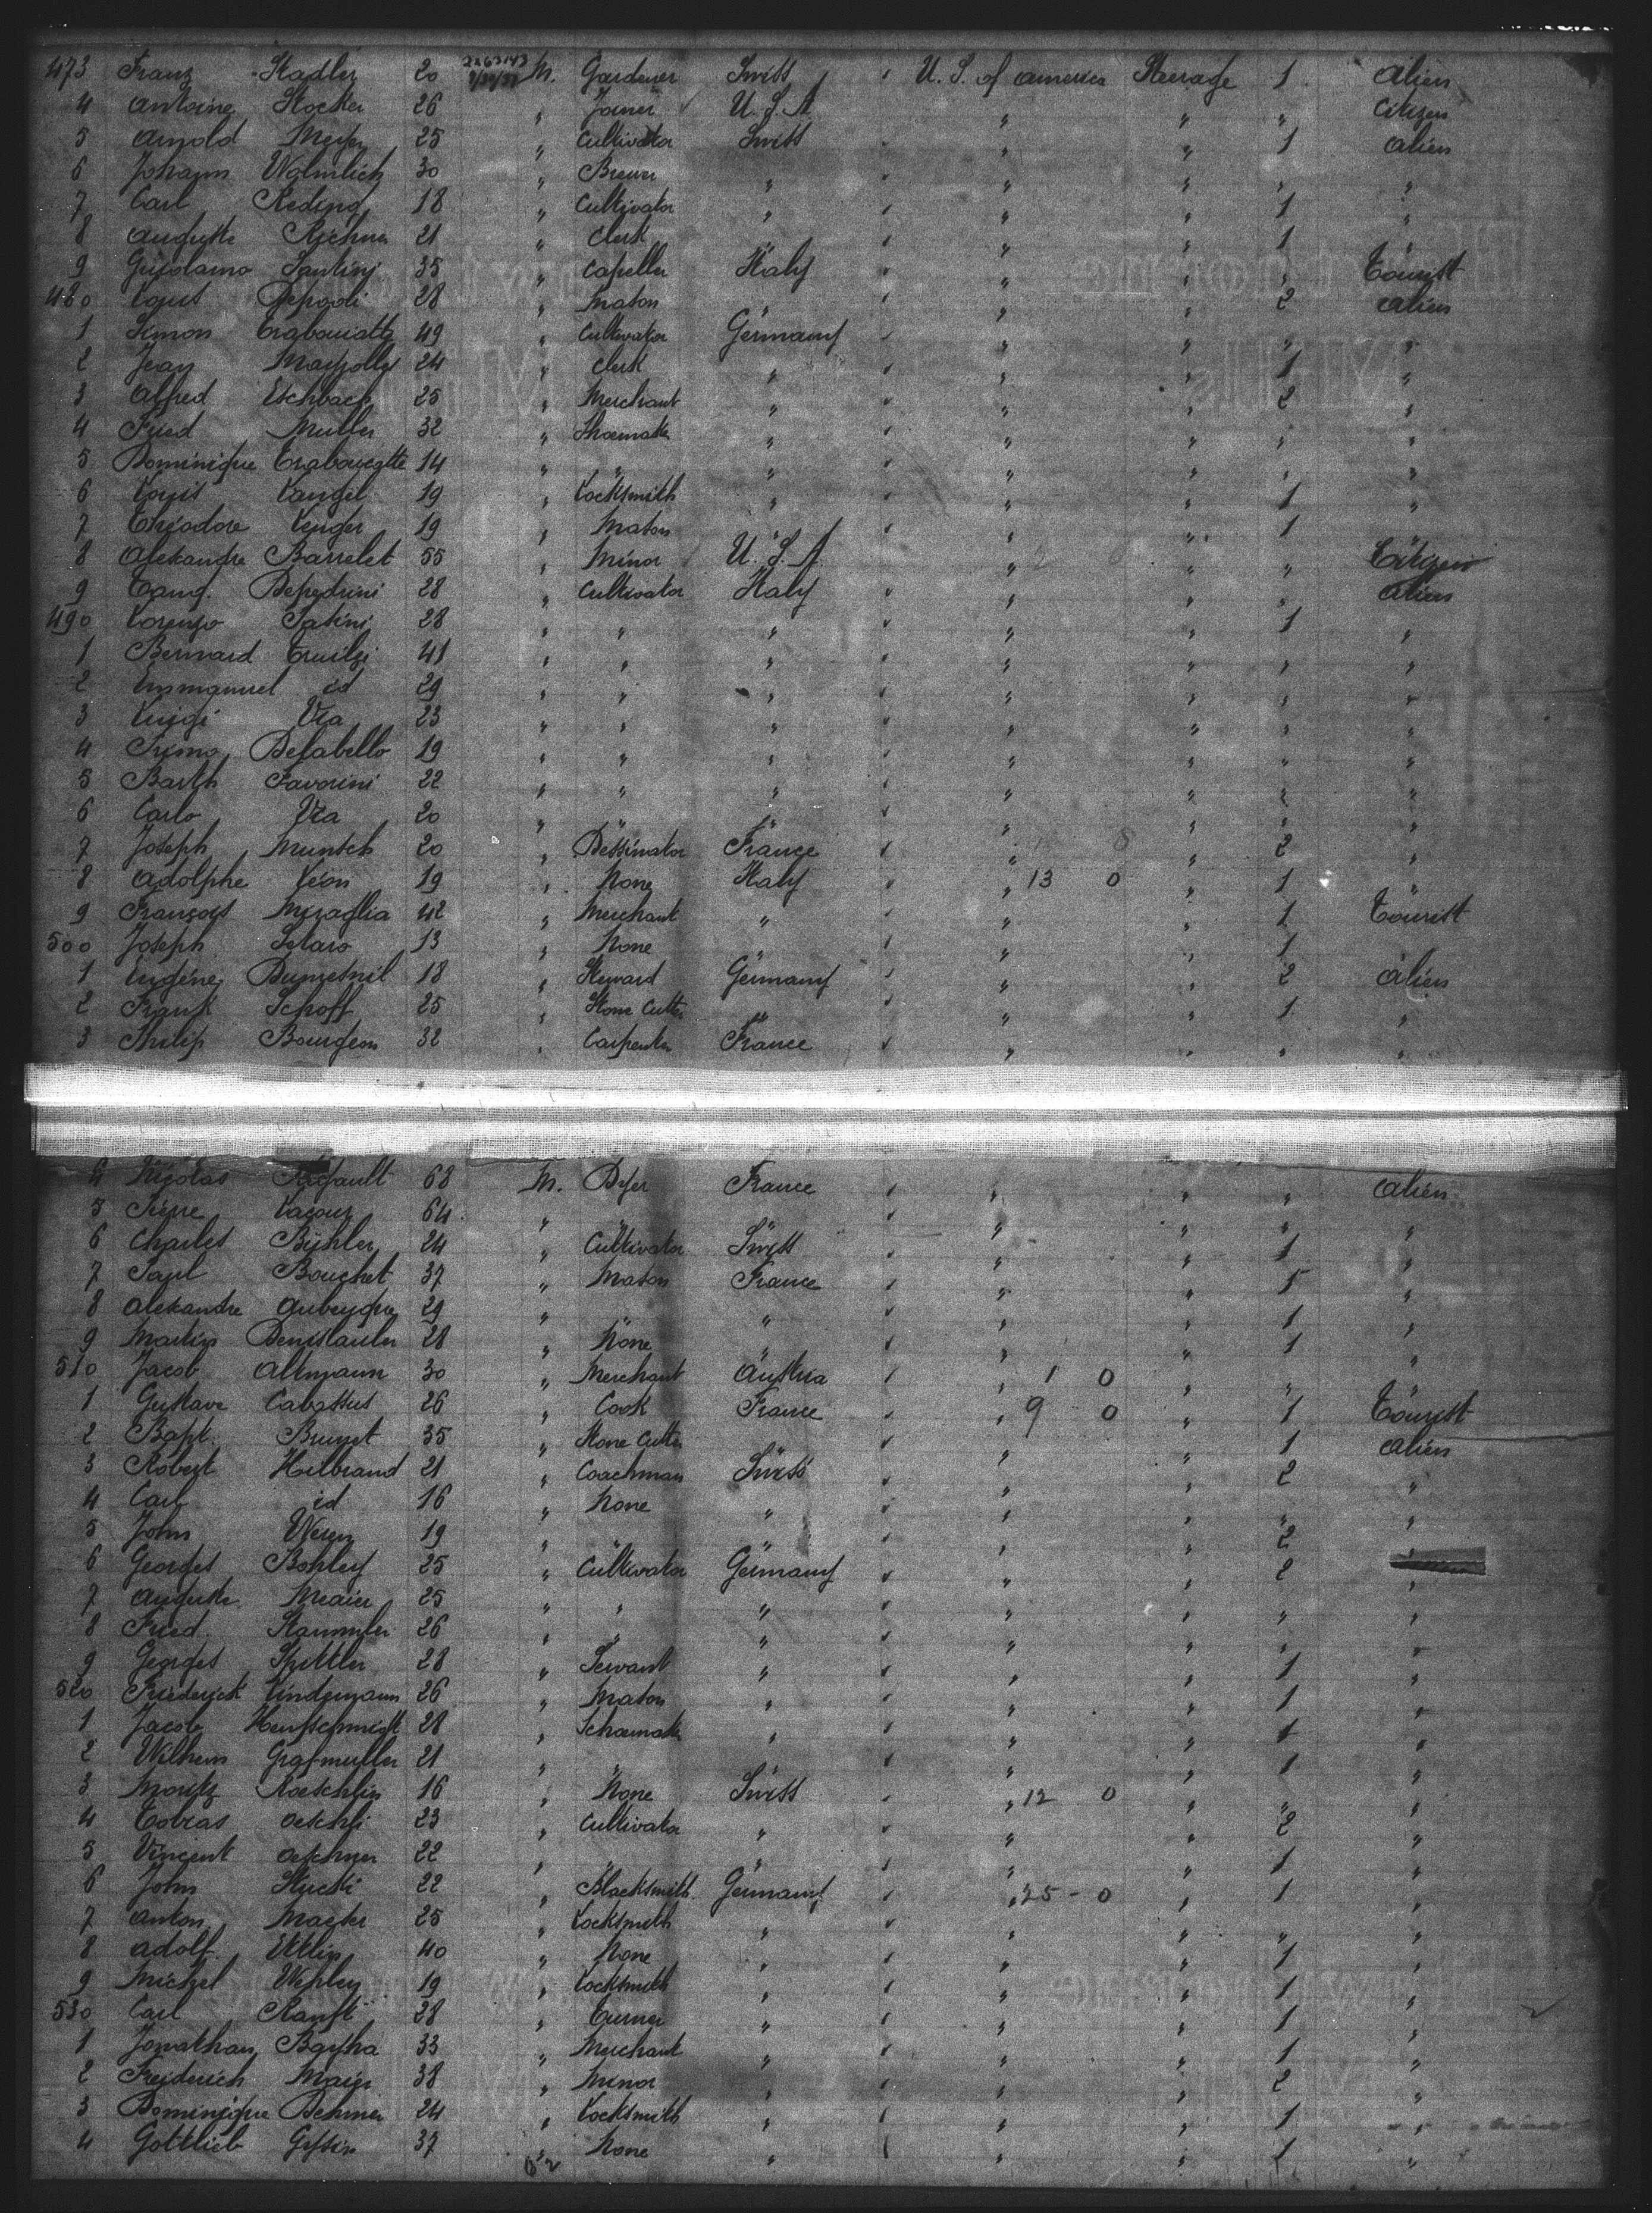 473 Franz Stadler 20 M. Gardener Swiss U. S. of america Steerage 1 alien
4 Antoine Stocker 26 " Joiner U. S. A. " " " Citizen
5 Arnold Meyer 25 " Cultivator Swiss " " 1 alien
6 Johann 30 " Brewer " " " " "
7 Carl Reding 18 " Cultivator " " " 1 "
8 Auguste 21 " Clerk " " " 1 "
9 Santini 35 " Capeller Italy " " " Tourist
480 Louis 28 " Mason " " " 2 alien
1 Simon 49 " Cultivator Germany " " " "
2 Jean 24 " Clerk " " " 1 "
3 Alfred Eschbach 25 " Merchant " " " 2 "
4 Fried Muller 32 " Shoemaker " " " " "
5 Dominique 14 " " " " " " "
6 Louis 19 " Locksmith " " " 1 "
7 Théodore 19 " Mason " " " 1 "
8 Alexandre Barrelet 55 " Minor U. S. A. " " " Citizen
9 Depedrini 28 " Cultivator Italy " " " alien
490 Lorenzo 28 " " " " " 1 "
1 Bernard 41 " " " " " " "
2 Emmanuel id 29 " " " " " " "
3 Luigi Via 23 " " " " " " "
4 Primo Defabello 19 " " " " " " "
5 Barth Favorini 22 " " " " " " "
6 Carlo Via 20 " " " " " " "
7 Joseph Muntch 20 " Dessinator France " " 2 "
8 Adolphe Léon 19 " None Italy " 13 0 " 1 "
9 François Miraglia 42 " Merchant " " " 1 Tourist
500 Joseph 13 " None " " " 1 "
1 Eugène 18 " Steward Germany " " 2 alien
2 Frank Schoff 25 " Stone Cutter " " " 1 "
3 Philip Bourgeon 32 " Carpenter France " " " "
4 Nicolas 68 M. Dyer France " " " alien
5 Pierre Lacour 64 " " " " " " "
6 Charles Bühler 24 " Cultivator Swiss " " 1 "
7 Paul Bouchet 37 " Mason France " " 5 "
8 Alexandre 29 " " " " " 1 "
9 Martin 28 " None " " " 1 "
510 Jacob Altmann 30 " Merchant Austria " 1 0 " " "
1 Gustave Cabassus 26 " Cook France " 9 0 " 1 Tourist
2 Bapt. Brunet 35 " Stone Cutter " " " 1 alien
3 Robert Hilbrand 21 " Coachman Swiss " " 2 "
4 Carl id 16 " None " " " " "
5 John 19 " " " " " 2 "
6 Georges Bohley 25 " Cultivator Germany " " 2 "
7 Auguste Meaier 25 " " " " " " "
8 Fried. Stammler 26 " " " " " " "
9 Georges Spittler 28 " Servant " " " 1 "
520 Friederick Lindemann 26 " Mason " " " 1 "
1 Jacob 28 " Schoemaker " " " 1 "
2 Wilhem Grafmuller 21 " " " " " 1 "
3 Moritz Koeschlin 16 " None Swiss " 12 0 " " "
4 Tobias Oeschli 23 " Cultivator " " " 2 "
5 Vincent 22 " " " " " 1 "
6 John Stucki 22 " Blacksmith Germany " 25 - 0 " 1 "
7 Anton 25 " Locksmith " " " " "
8 Adolf Ettlin 40 " None " " " 1 "
9 Michel 19 " Locksmith " " " 1 "
530 Carl Ranft 28 " Turner " " " 1 "
1 Jonathan 33 " Merchant " " " 1 "
2 Freiderich 38 " Minor " " " 2 "
3 Dominique 24 " Locksmith " " " 1 "
4 Gottlieb 37 " None " " " 1 "